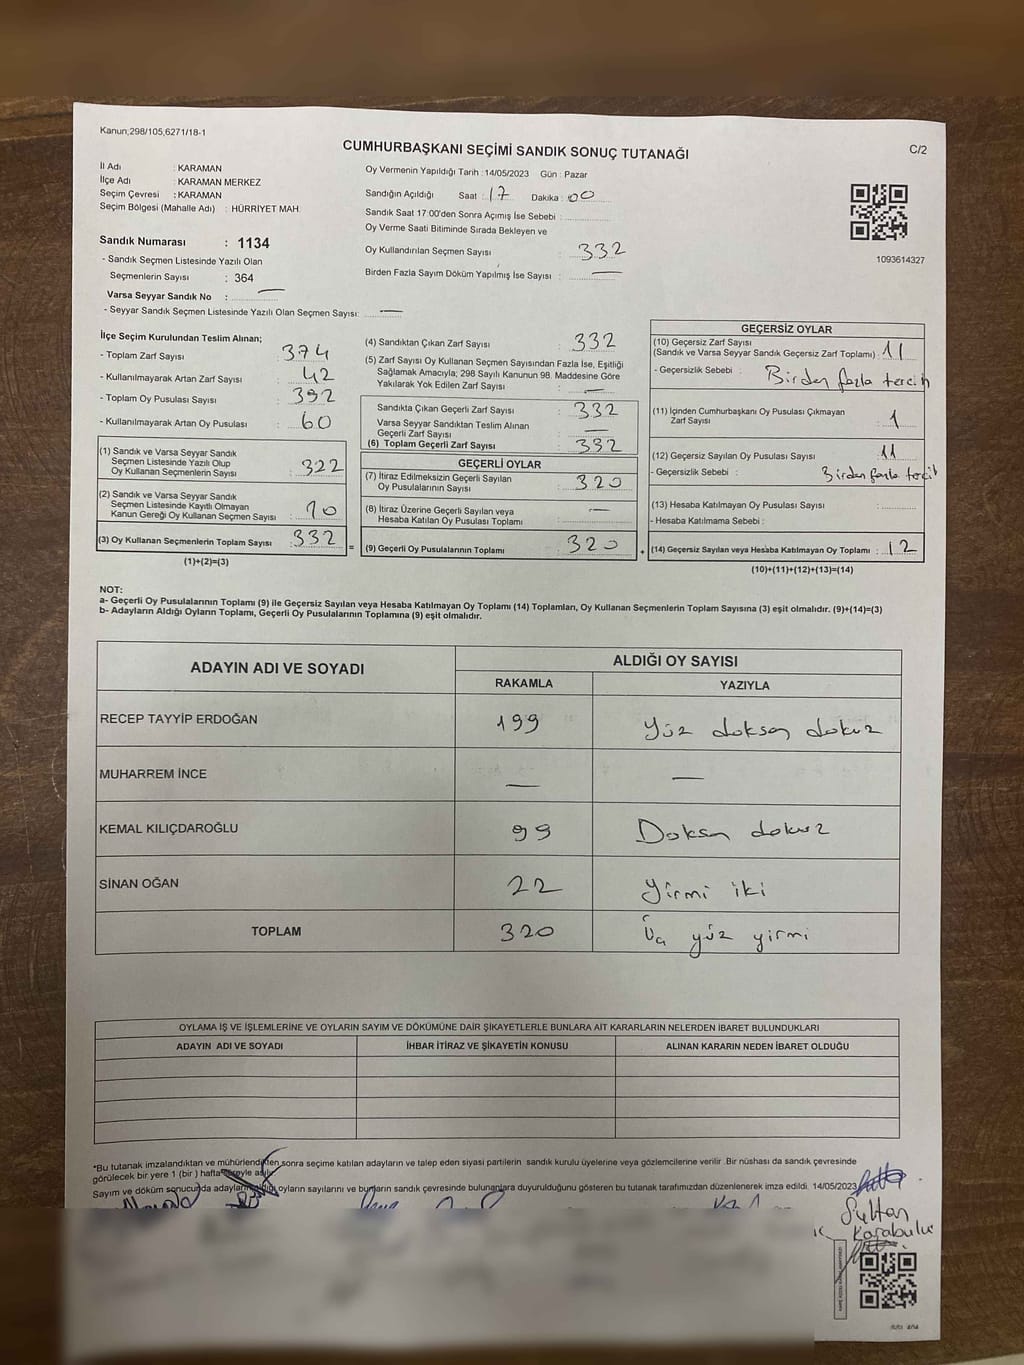 Kanun,298/105,6271/18-1
C/2
CUMHURBAŞKANI SEÇİMİ SANDIK SONUÇ TUTANAĞI
İl Adı : KARAMAN
İlçe Adı : KARAMAN MERKEZ
Seçim Çevresi : KARAMAN
Seçim Bölgesi (Mahalle Adı) : HÜRRİYET MAH.
Sandık Numarası : 1134
- Sandık Seçmen Listesinde Yazılı Olan
Seçmenlerin Sayısı : 364
Varsa Seyyar Sandık No : —
- Seyyar Sandık Seçmen Listesinde Yazılı Olan Seçmen Sayısı: —
Oy Vermenin Yapıldığı Tarih : 14/05/2023 Gün : Pazar
Sandığın Açıldığı Saat : 17 Dakika : 00
Sandık Saat 17:00'den Sonra Açımış İse Sebebi :
Oy Verme Saati Bitiminde Sırada Bekleyen ve
Oy Kullandırılan Seçmen Sayısı : 332
Birden Fazla Sayım Döküm Yapılmış İse Sayısı : —
1093614327
İlçe Seçim Kurulundan Teslim Alınan;
- Toplam Zarf Sayısı : 374
- Kullanılmayarak Artan Zarf Sayısı : 42
- Toplam Oy Pusulası Sayısı : 392
- Kullanılmayarak Artan Oy Pusulası : 60
(1) Sandık ve Varsa Seyyar Sandık
Seçmen Listesinde Yazılı Olup
Oy Kullanan Seçmenlerin Sayısı : 322
(2) Sandık ve Varsa Seyyar Sandık
Seçmen Listesinde Kayıtlı Olmayan
Kanun Gereği Oy Kullanan Seçmen Sayısı : 10
(3) Oy Kullanan Seçmenlerin Toplam Sayısı : 332
(1)+(2)=(3)
(4) Sandıktan Çıkan Zarf Sayısı : 332
(5) Zarf Sayısı Oy Kullanan Seçmen Sayısından Fazla İse, Eşitliği
Sağlamak Amacıyla; 298 Sayılı Kanunun 98. Maddesine Göre
Yakılarak Yok Edilen Zarf Sayısı : —
Sandıkta Çıkan Geçerli Zarf Sayısı : 332
Varsa Seyyar Sandıktan Teslim Alınan
Geçerli Zarf Sayısı : —
(6) Toplam Geçerli Zarf Sayısı : 332
GEÇERLİ OYLAR
(7) İtiraz Edilmeksizin Geçerli Sayılan
Oy Pusulalarının Sayısı : 320
(8) İtiraz Üzerine Geçerli Sayılan veya
Hesaba Katılan Oy Pusulası Toplamı : —
= (9) Geçerli Oy Pusulalarının Toplamı : 320 +
GEÇERSİZ OYLAR
(10) Geçersiz Zarf Sayısı
(Sandık ve Varsa Seyyar Sandık Geçersiz Zarf Toplamı) : 11
- Geçersizlik Sebebi : Birden fazla tercih
(11) İçinden Cumhurbaşkanı Oy Pusulası Çıkmayan
Zarf Sayısı : 1
(12) Geçersiz Sayılan Oy Pusulası Sayısı : 11
- Geçersizlik Sebebi : Birden fazla tercih
(13) Hesaba Katılmayan Oy Pusulası Sayısı :
- Hesaba Katılmama Sebebi :
(14) Geçersiz Sayılan veya Hesaba Katılmayan Oy Toplamı : 12
(10)+(11)+(12)+(13)=(14)
NOT:
a- Geçerli Oy Pusulalarının Toplamı (9) ile Geçersiz Sayılan veya Hesaba Katılmayan Oy Toplamı (14) Toplamları, Oy Kullanan Seçmenlerin Toplam Sayısına (3) eşit olmalıdır. (9)+(14)=(3)
b- Adayların Aldığı Oyların Toplamı, Geçerli Oy Pusulalarının Toplamına (9) eşit olmalıdır.
ADAYIN ADI VE SOYADI
ALDIĞI OY SAYISI
RAKAMLA YAZIYLA
RECEP TAYYİP ERDOĞAN 199 Yüz doksan dokuz
MUHARREM İNCE — —
KEMAL KILIÇDAROĞLU 99 Doksan dokuz
SİNAN OĞAN 22 Yirmi iki
TOPLAM 320 Üç yüz yirmi
OYLAMA İŞ VE İŞLEMLERİNE VE OYLARIN SAYIM VE DÖKÜMÜNE DAİR ŞİKAYETLERLE BUNLARA AİT KARARLARIN NELERDEN İBARET BULUNDUKLARI
ADAYIN ADI VE SOYADI İHBAR İTİRAZ VE ŞİKAYETİN KONUSU ALINAN KARARIN NEDEN İBARET OLDUĞU
*Bu tutanak imzalandıktan ve mühürlendikten sonra seçime katılan adayların ve talep eden siyasi partilerin sandık kurulu üyelerine veya gözlemcilerine verilir .Bir nüshası da sandık çevresinde
görülecek bir yere 1 (bir ) hafta süreyle asılır.
Sayım ve döküm sonucu da adayların aldığı oyların sayılarını ve bunların sandık çevresinde bulunanlara duyurulduğunu gösteren bu tutanak tarafımızdan düzenlenerek imza edildi. 14/05/2023
Sultan
Karabulu